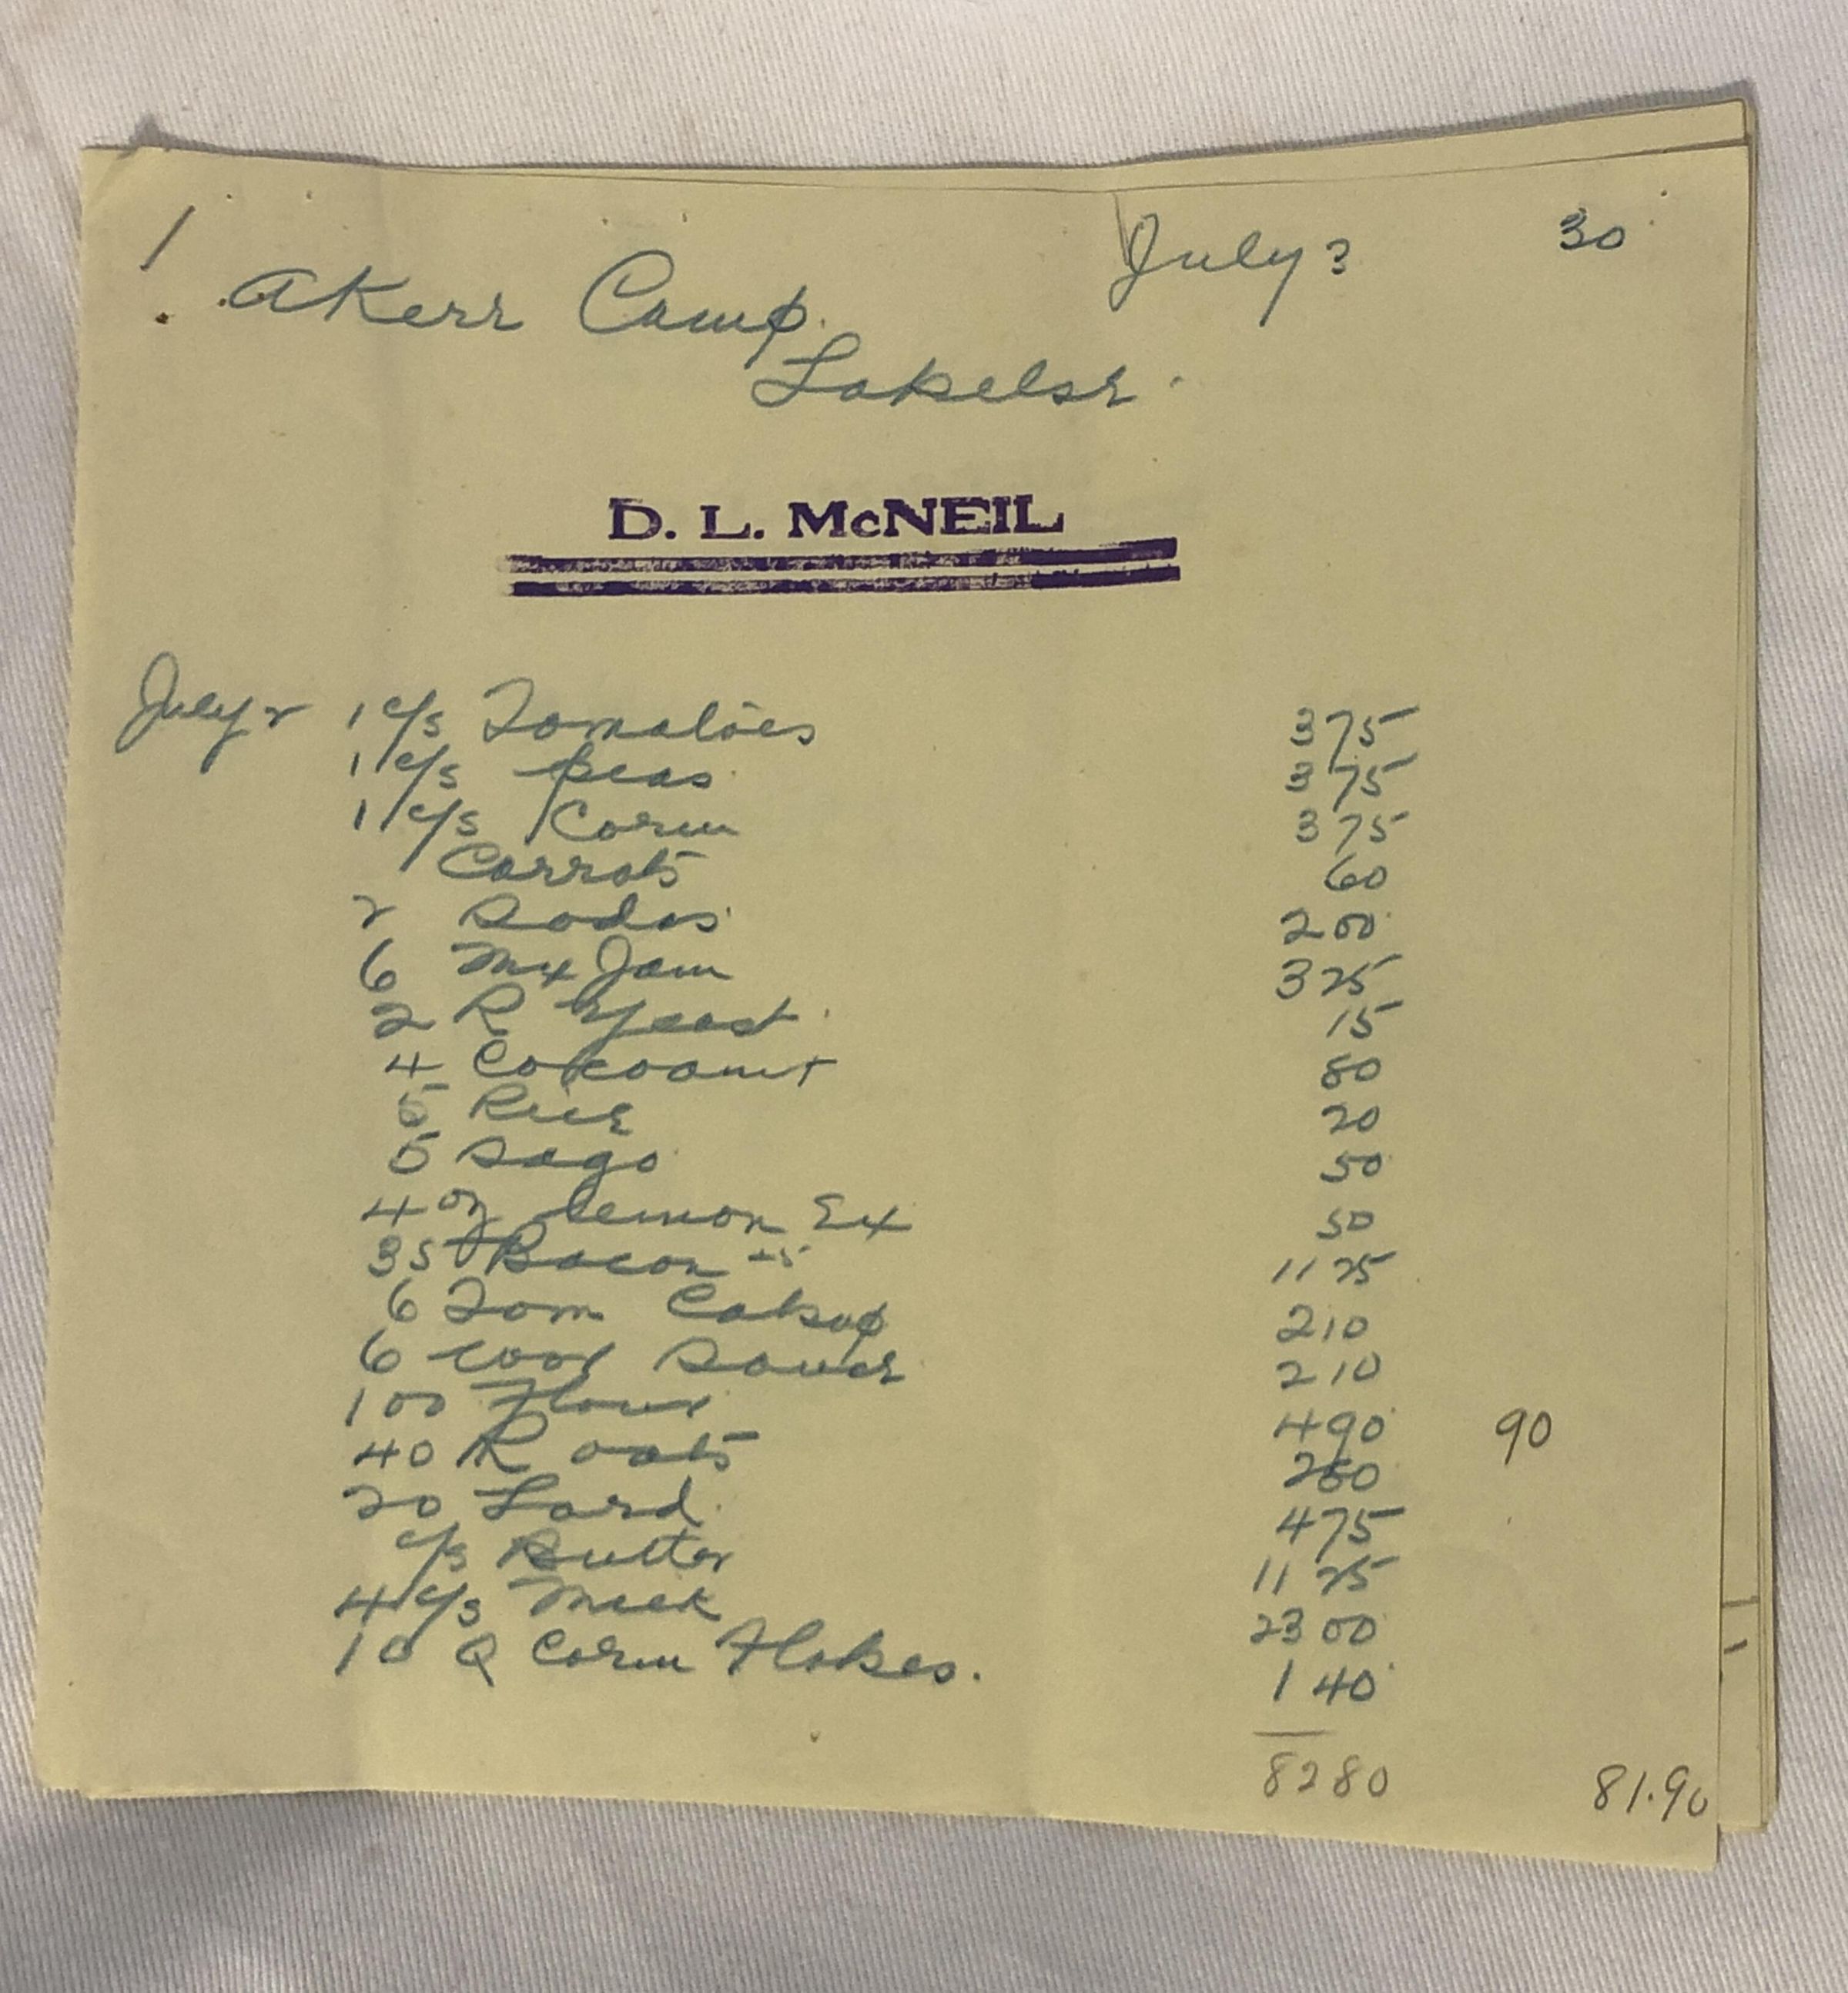 1
July 3 30
A Kerr Camp.
Lakelse.
D. L. McNEIL
July 2 1 c/s Tomatoes 375
1 c/s peas 375
1 c/s Corn 375
Carrots 60
2 Sodas 200
6 Mx Jam 325
2 R Yeast 15
4 Cocoanut 80
5 Rice 20
5 Sago 50
4 oz Lemon Ex 50
35 Bacon 1125
6 Tom Catsup 210
6 Wor Sauce 210
100 Flour 490 90
40 R oats 260
20 Lard 475
c/s Butter 1125
4 c/s Milk 2300
10 Q Corn Flakes. 140
8280 81.90